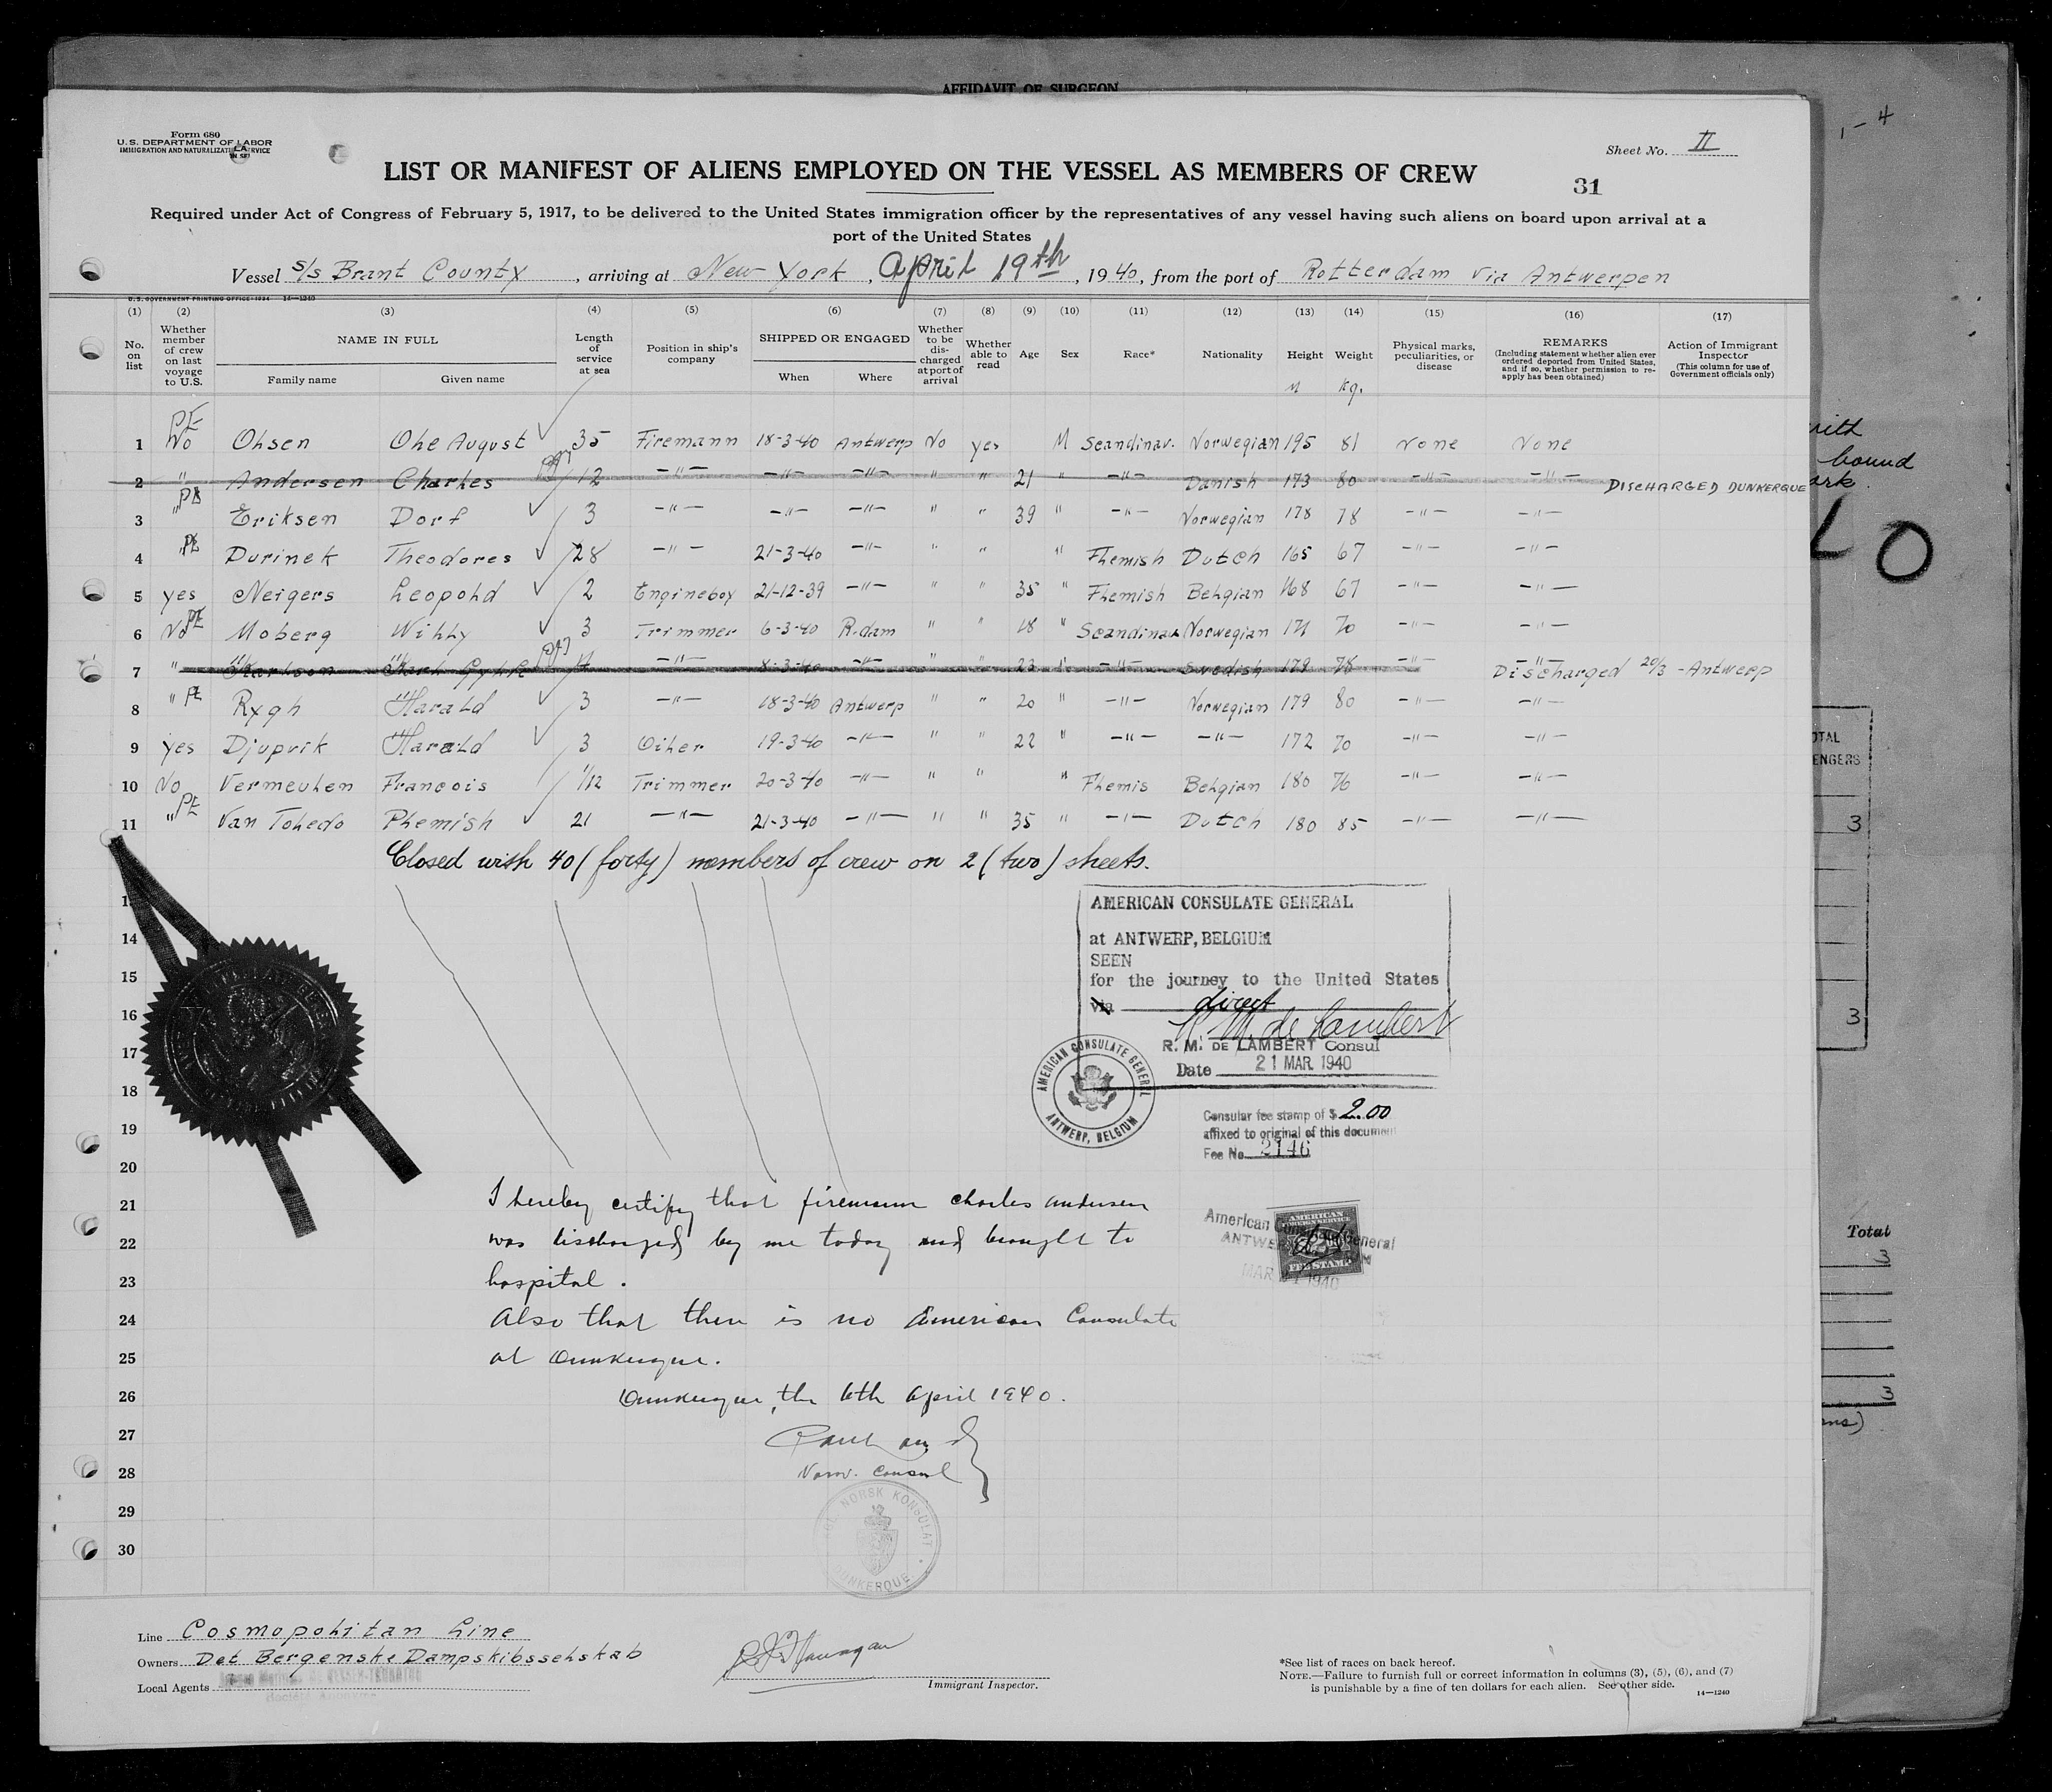 AFFIDAVIT OF SURGEON
1-4
Form 680
U.S. DEPARTMENT OF LABOR
IMMIGRATION AND NATURALIZATION SERVICE
Sheet No. II
LIST OR MANIFEST OF ALIENS EMPLOYED ON THE VESSEL AS MEMBERS OF CREW
31
Required under Act of Congress of February 5, 1917, to be delivered to the United States immigration officer by the representatives of any vessel having such aliens on board upon arrival at a
port of the United States
Vessel S/s Brant County, arriving at New York, April 19th, 1940, from the port of Rotterdam via Antwerpen
U.S. GOVERNMENT PRINTING OFFICE: 1934 14—1240
(1) (2) (3) (4) (5) (6) (7) (8) (9) (10) (11) (12) (13) (14) (15) (16) (17)
No. on list
Whether member of crew on last voyage to U.S.
NAME IN FULL
Family name Given name
Length of service at sea
Position in ship's company
SHIPPED OR ENGAGED
When Where
Whether to be discharged at port of arrival
Whether able to read
Age
Sex
Race*
Nationality
Height
Weight
Physical marks, peculiarities, or disease
REMARKS
(Including statement whether alien ever ordered deported from United States, and if so, whether permission to reapply has been obtained)
Action of Immigrant Inspector
(This column for use of Government officials only)
M Kg.
PE
1 No Ohsen Ohe August 35 Firemann 18-3-40 Antwerp No yes M Scandinav. Norwegian 195 81 None None
2 " Andersen Charhes 12 -"- -"- -"- " " 21 " -"- Danish 173 80 -"- -"- DISCHARGED DUNKERQUE
3 " PE Eriksen Dorf 3 -"- -"- -"- " " 39 " -"- Norwegian 178 78 -"- -"-
4 " PE Durinek Theodores 28 -"- 21-3-40 -"- " " " Fhemish Dutch 165 67 -"- -"-
5 yes Neigers Leopohd 2 Engineboy 21-12-39 -"- " " 35 " Fhemish Behgian 168 67 -"- -"-
6 No PE Moberg Wihhy 3 Trimmer 6-3-40 R.dam " " 18 " Scandinav Norwegian 171 70 -"- -"-
7 " -"- 8-3-40 -"- " " 23 " -"- Swedish 179 78 -"- -"- Discharged 20/3 - Antwerp
8 " PE Rygh Harald 3 -"- 18-3-40 Antwerp " " 20 " -"- Norwegian 179 80 -"- -"-
9 yes Djupvik Harald 3 Oiher 19-3-40 -"- " " 22 " -"- -"- 172 70 -"- -"-
10 No Vermeuhen Francois 1/12 Trimmer 20-3-40 -"- " " " Fhemis Behgian 180 76 -"- -"-
11 " PE Van Tohedo Phemish 21 -"- 21-3-40 -"- " " 35 " -"- Dutch 180 85 -"- -"-
Closed with 40 (forty) members of crew on 2 (two) sheets.
14
15
16
17
18
19
20
21
22
23
24
25
26
27
28
29
30
AMERICAN CONSULATE GENERAL
at ANTWERP, BELGIUM
SEEN
for the journey to the United States
via direct
R. M. de Lambert
R. M. DE LAMBERT Consul
Date 21 MAR. 1940
AMERICAN CONSULATE GENERAL
ANTWERP, BELGIUM
Consular fee stamp of $ 2.00
affixed to original of this document
Fee No. 2146
American Consulate General
ANTWERP
MAR 21 1940
AMERICAN FOREIGN SERVICE
FEE STAMP
I hereby certify that firemann charles andersen
was discharged by me today and brought to
hospital.
Also that there is no American Consulate
at Dunkerque.
Dunkerque, the 6th April 1940.
Norw. Consul
NORSK KONSULAT
DUNKERQUE
Line Cosmopohitan Line
Owners Det Bergenske Dampskibssehskab
Local Agents
Immigrant Inspector.
*See list of races on back hereof.
NOTE.—Failure to furnish full or correct information in columns (3), (5), (6), and (7)
is punishable by a fine of ten dollars for each alien. See other side.
14—1240
with
bound
ark.
LO
3
3
Total
3
3